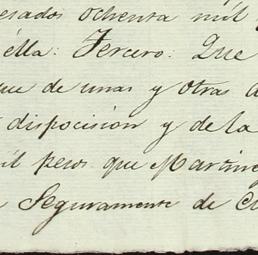 esados ochenta mil
élla: Tercero: Que
que de unas y otras
disposcision y de la
il pesos que Martin
Seguramente de